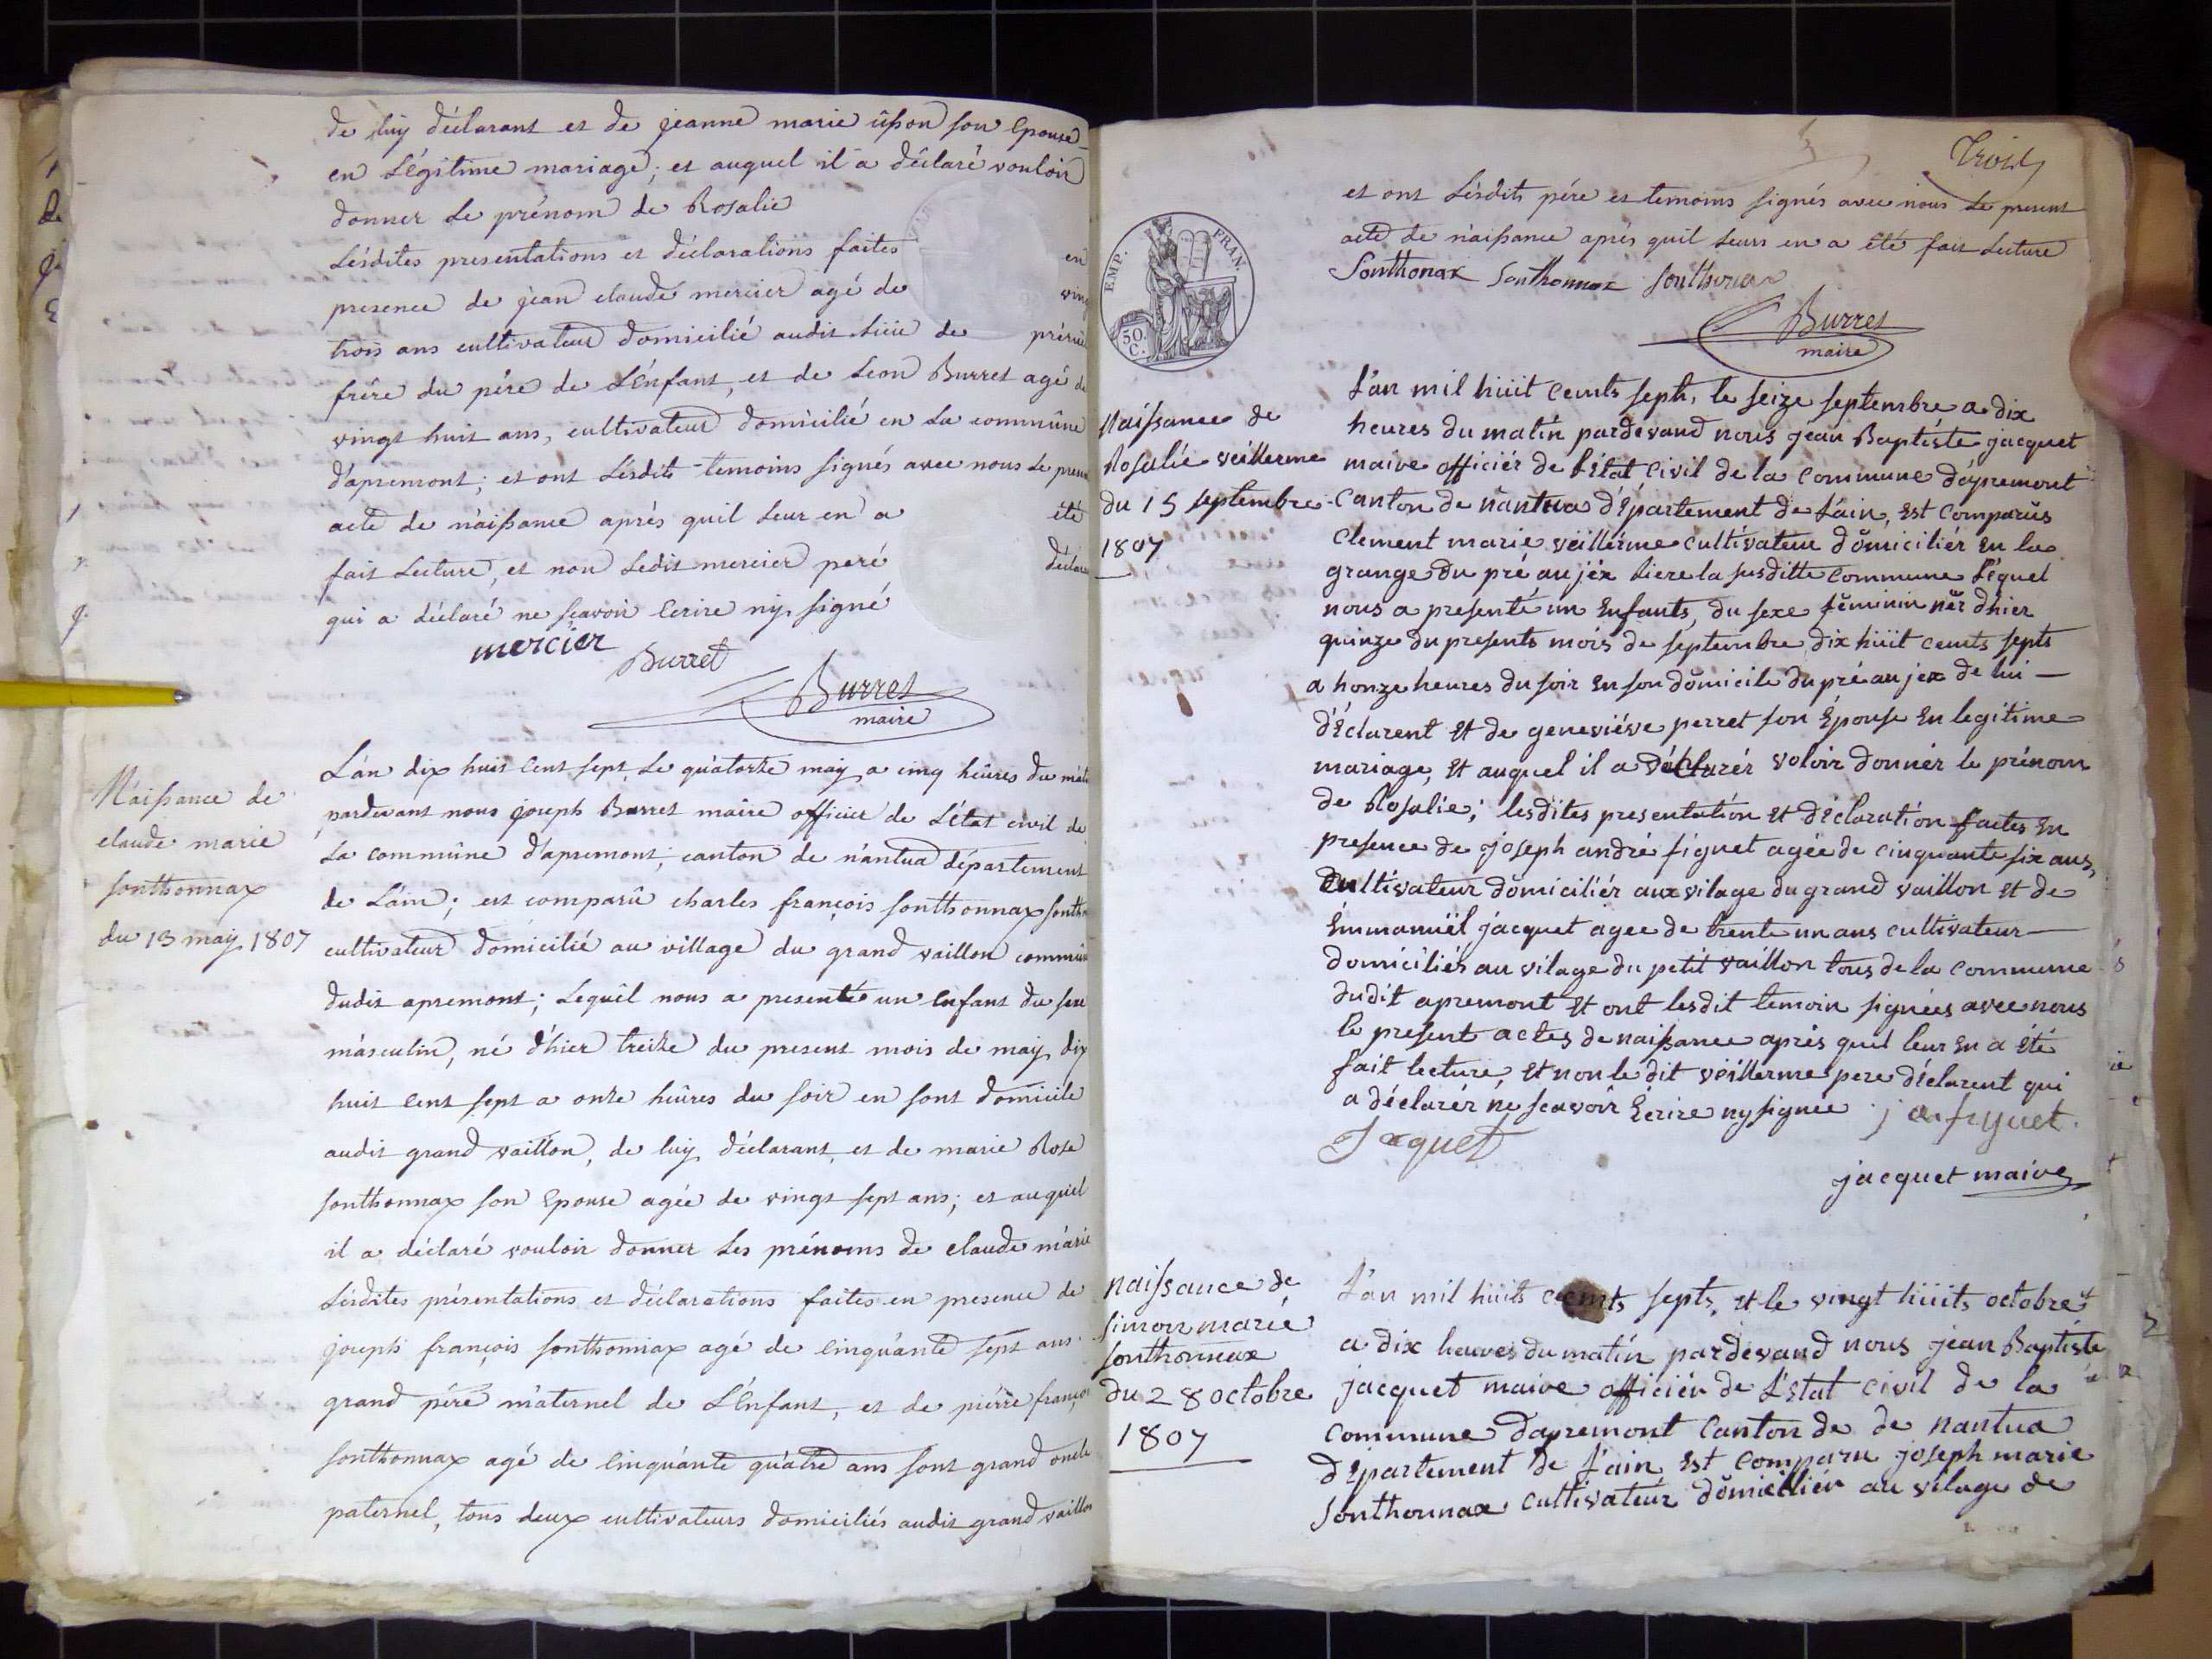 de luy déclarant et de jeanne marie ûßon son Epouse
en Légitime mariage; et auquel il a déclaré vouloir
donner Le prénom de Rosalie
Lésdites presentations et déclarations faites en
presence de jean claude mercier agé de
trois ans cultivateur domicilié audit Lieu de
frère du père de L'énfant, et de Leon Burret agé de
vingt huit ans, cultivateur domicilié en La commûne
d'apremont; et ont Lésdits temoins signés avec nous Le
acte de n'aißance aprés quil Leur en a été
fait Lecture, et non Ledit mercier peré
qui a déclaré ne sçavoir Ecrire ny signé
mercier
Burret
Burret
maire
N'aißance de
claude marie
sonthonnax
du 13 may 1807
L'án dix huit Cent sept Le quátorze may a cinq heûres du
pardevant nous joseph Burret maire officier de L'état civil de
La commûne d'apremont, canton de n'antua département
de L'ain; est comparû charles françois sonthonnax
cultivateur domicilié au village du grand vaillon
dudit apremont; Lequel nous a presenté un Enfant du
másculin, né d'hier treize du present mois de may dix
huit Cent sept a onze heûres du soir en sont domicile
audit grand vaillon, de luy déclarant, et de marie Rose
sonthonnax son Epouse agée de vingt sept ans; et auquel
il a déclaré vouloir donner Les prénoms de claude márie
Lésdites présentations et déclarations faites en presence de
joseph françois sonthonnax agé de Cinquánte sept ans
grand pére máternel de L'énfant, et de piérre
sonthonnax agé de Cinquánte quátre ans sont grand oncle
paternel, tous deux cultivateurs domiciliés audit grand vaillon
Trois
et ont Lésdits pére et temoins signés avec nous Le present
acte de n'aißance aprés quil Leurs en a été fait Lecture
Sonthonax Sonthonnax Sonthonax
Burret
maire
EMP. FRAN.
50 C.
Naißance de
Rosalie veillerme
du 15 septembre
1807
L'an mil hüit cents sept, le seize septembre a dix
heures du matin pardevand nous jean Baptiste jacquet
maire officiér de l'état civil de la commune d'apremont
canton de nantua d'épartement de L'ain, est comparûs
clement marie veillérme cultivateur domiciliér en la
grange du pré au jéx Liere la susditte commune Léquel
nous a presenté un Enfants, du sexe féminin nér dhier
quinze du presents mois de septembre dix hüit cents septs
a honze heures du soir en son domicile du pré au jex de lui
d'éclarent et de geneviéve perret son épouse en legitime
mariage, et auquel il a déclarér voloir donnér le prénom
de Rosalie; lesdites presentation et déclaration faites en
presence de joseph andré figuet agée de cinquante six ans,
Cultivateur domiciliér aux vilage du grand vaillon et de
Emmanuël jacquet agee de trente un ans cultivateur
domiciliés au vilage du petit vaillon tous de la commune
dudit apremont et ont lesdit temoin signées avec nous
le present actes de naißance aprés quil leur en a été
fait lecture, et non le dit veillerme pere déclarent qui
a déclarér ne scavoir écrire ny signée j a figuet.
Jacquet
jacquet maire
naißance de
simon marie
sonthonnax
du 28 octobre
1807
L'an mil hüits cents septs, et le vingt hüits octobre
a dix heures du matin pardevand nous jean Baptiste
jacquet maire officiér de L'état civil de la
commune d'apremont canton de de nantua
département de L'ain est comparu joseph marie
sonthonnax cultivateur domiciliér au vilage de